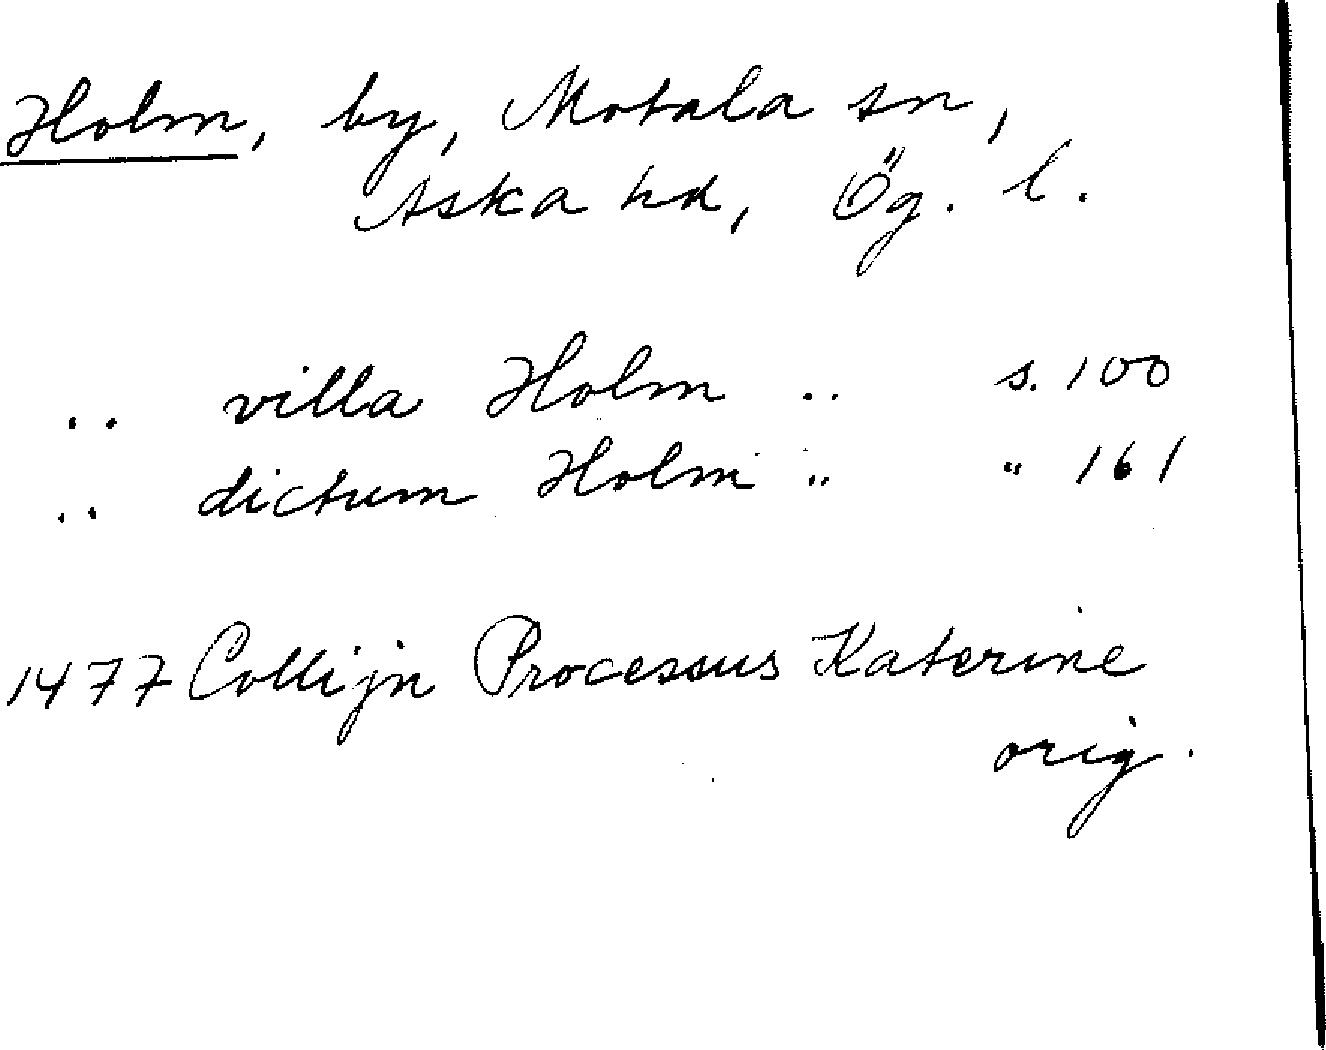 Holm, by, Motala sn,
Aska hd, Ög. l.
.. villa Holm .. s. 100
.. dictum Holm .. " 161
1477 Collijn Processus Katerine
orig.